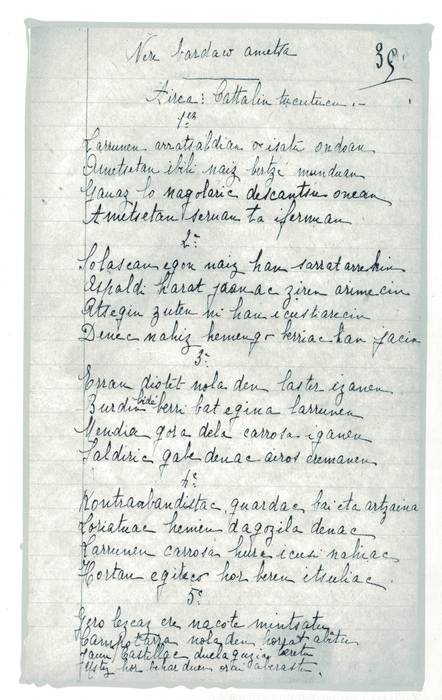 Nere bardaco ametsa
39
Airea: Cattalin tucutucu.-
1en
Larrunen arratsaldian oisatu ondoan
Ametsetan ibili naiz bertze munduan
Gauaz lo nagolaric descantsu onean
Ametsetan seruan ta ifernuan
2e
Solascan egon naiz han sarrat arrekin
Aspaldi harat juanac ziren arimecin
Atsegin zuten ni han icustiarecin
Denec nahiz hemengo berriac han jacin
3e
Erran diotet nola den laster izanen
Burdin bide berri bat egina larrunen
Mendia gora dela carrosa iganen
Zaldiric gabe denac airos eremanen
4e
Kontrabandistac, guardac bai eta artzaina
Loriatuac hemen dagozila denac
Larrunen carrosa hura icusi nahiac
Hortan egiteco hor beren itsuliac
5e
Gero lescaz ere nacote mintsatu
nola den horrat
Jaun Castillac
hor behar duen orai aberastu.